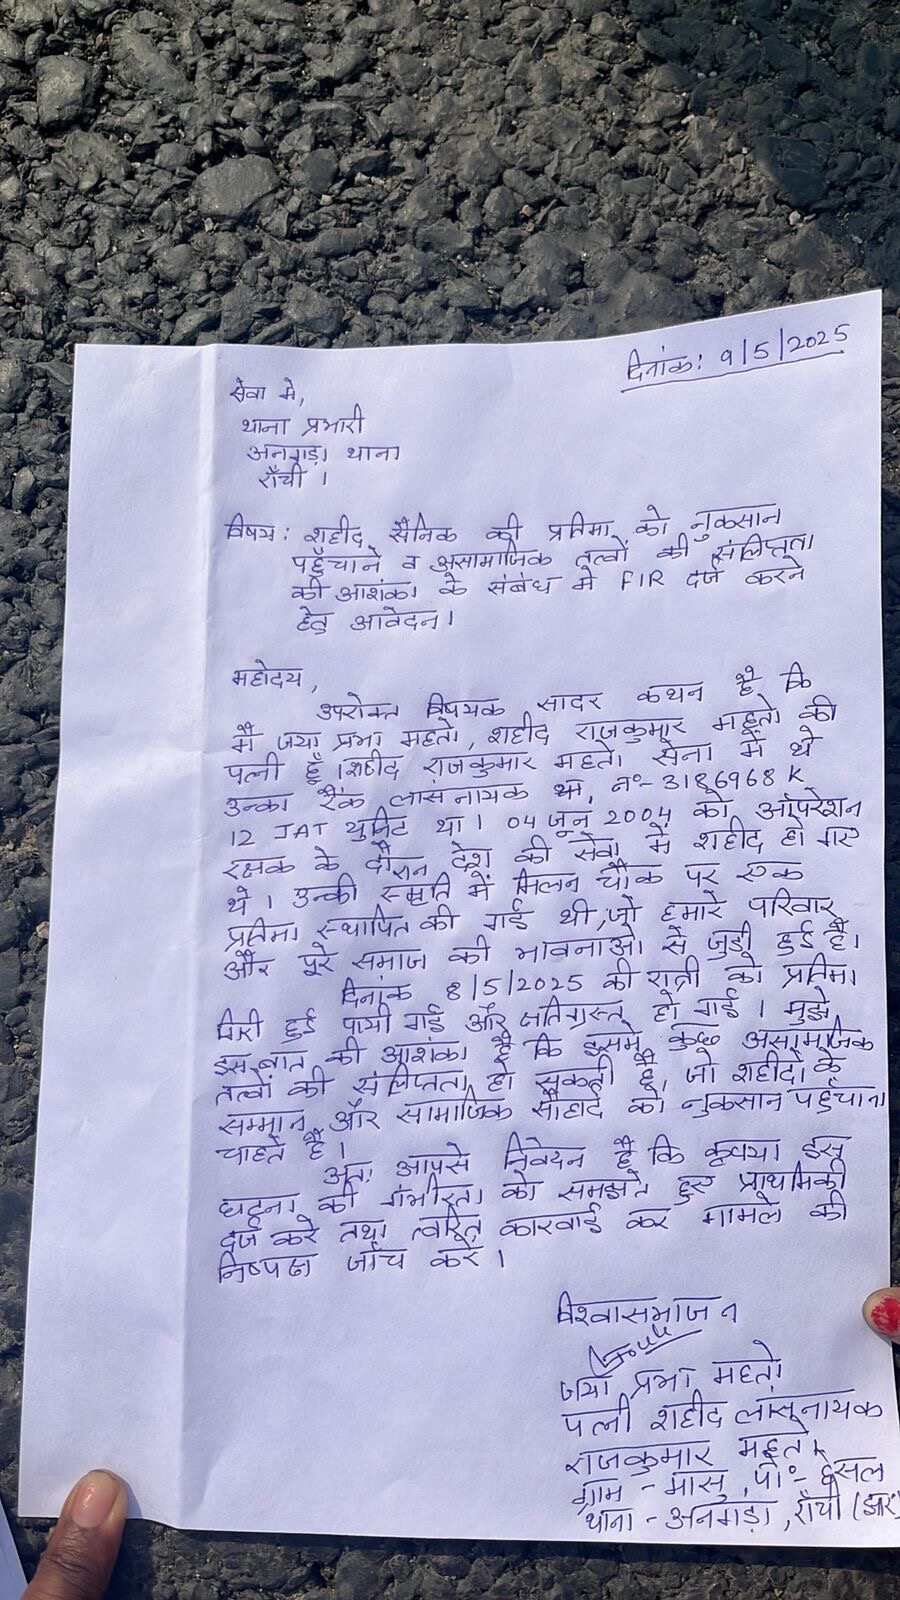 दिनांक: 9/5/2025
सेवा मे,
थाना प्रभारी
अनगड़ा थाना
राँची ।
विषय: शहीद सैनिक की प्रतिमा को नुकसान
पहुँचाने व असामाजिक तत्वों की संलिप्तता
की आशंका के संबंध मे FIR दर्ज करने
हेतु आवेदन।
महोदय,
उपरोक्त विषयक सादर कथन है कि
मैं जया प्रभा महतो, शहीद राजकुमार महतो की
पत्नी हूँ । शहीद राजकुमार महतो सेना में थे
उनका रैंक लांसनायक था, नं०- 3186968K
12 JAT युनिट था । 04 जून 2004 को ऑपरेशन
रक्षक के दौरान देश की सेवा में शहीद हो गए
थे । उनकी स्मृति में मिलन चौक पर एक
प्रतिमा स्थापित की गई थी, जो हमारे परिवार
और पूरे समाज की भावनाओं से जुड़ी हुई है।
दिनांक 8/5/2025 की रात्री को प्रतिमा
गिरी हुई पायी गई और क्षतिग्रस्त हो गई । मुझे
इस बात की आशंका है कि इसमे कुछ असामाजिक
तत्वों की संलिप्तता हो सकती है, जो शहीदों के
सम्मान और सामाजिक सौहार्द को नुकसान पहुँचाना
चाहते हैं ।
अतः आपसे निवेदन है कि कृपया इस
घटना की गंभीरता को समझते हुए प्राथमिकी
दर्ज करे तथा त्वरित कारवाई कर मामले की
निष्पक्ष जाँच करें ।
विश्वासभाजन
जया प्रभा महतो
पत्नी शहीद लांसनायक
राजकुमार महतो
ग्राम - मासु, पो०- हेसल
थाना - अनगड़ा, राँची (झार